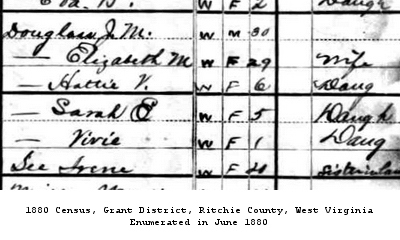 Eva B. W F 2 Daugr
Douglass J. M. W M 30
— Elizabeth M W F 29 Wife
— Hattie V. W F 6 Daug
— Sarah E W F 5 Daugh
— Vivie W F 1 Daug
Lee Irene W F 20 Sisterinlaw
1880 Census, Grant District, Ritchie County, West Virginia
Enumerated in June 1880